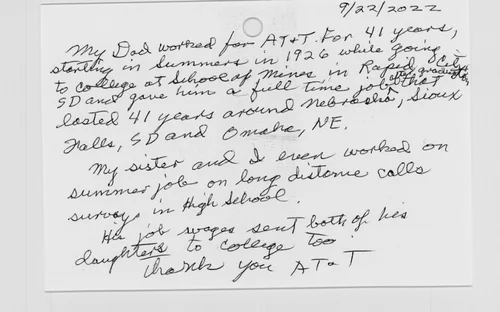 9/22/2022
My Dad worked for AT&T. For 41 years,
starting in Summers in 1926 while going
to college at School of Mines in Rapid City
SD and gave him a full time job after graduation that
lasted 41 years around Nebraska, Sioux
Falls, SD and Omaha, NE.
My sister and I even worked on
summer job on long distance calls
surveys in High School.
His job wages sent both of his
daughters to college too
Thank you AT&T